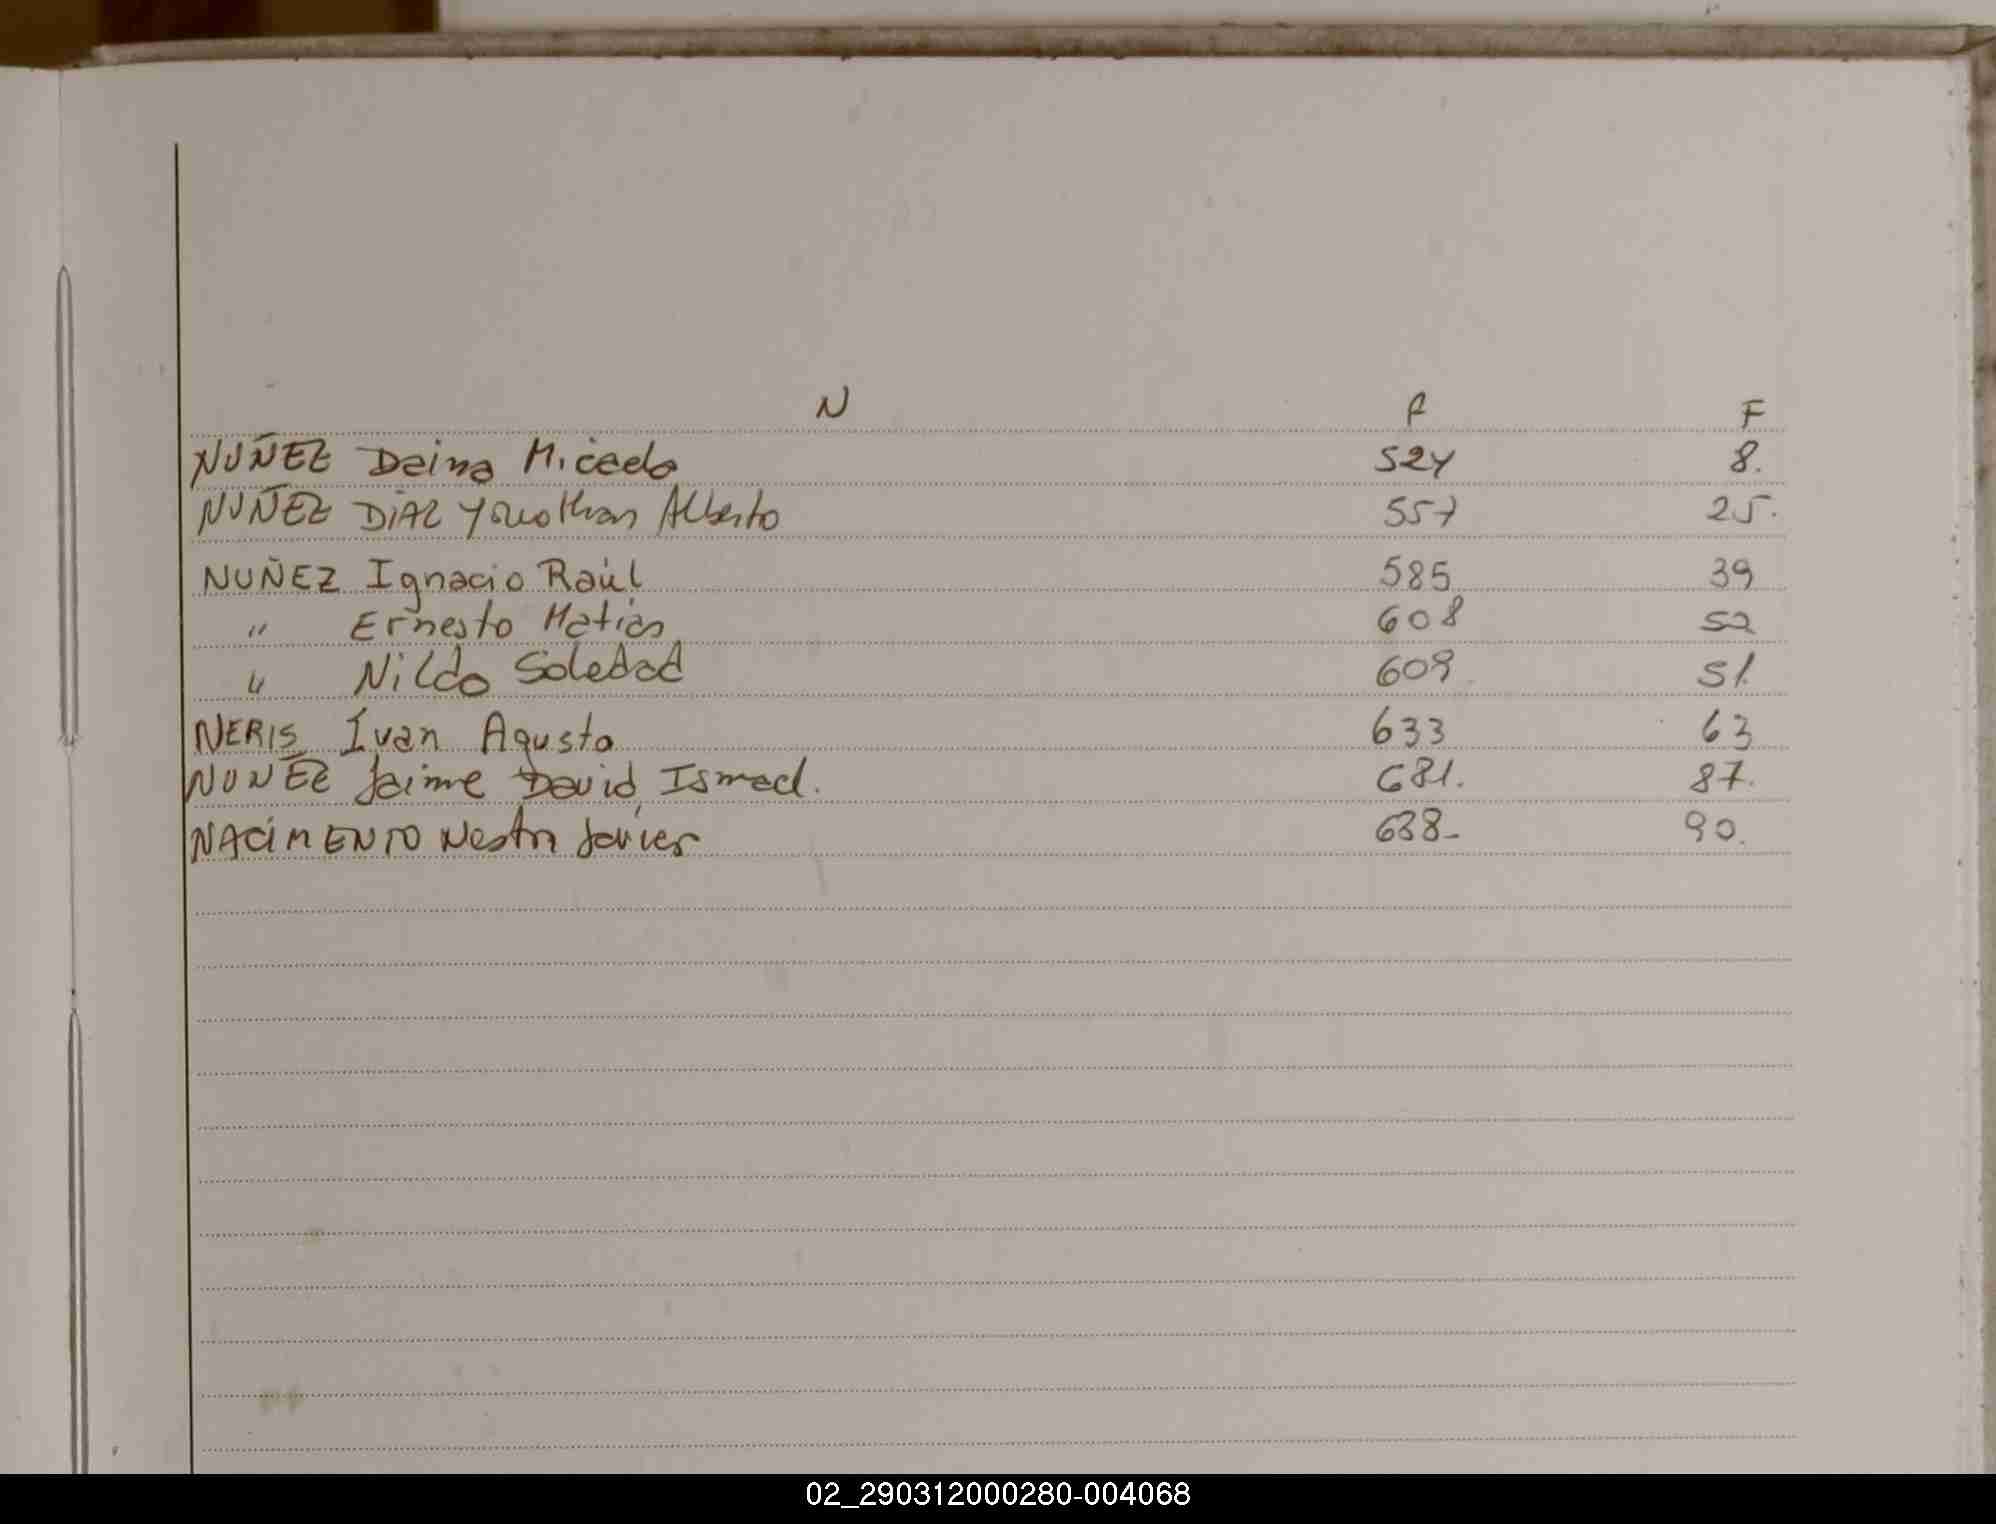 N A F
NUÑEZ Daina Micaela 524 8.
NUÑEZ DIAZ Yonothan Alberto 557 25.
NUÑEZ Ignacio Raúl 585 39
" Ernesto Matias 608 52
" Nilda Soledad 609 51.
NERIS Ivan Agusto 633 63
NUNEZ Jaime David Ismael. 681. 87.
NACIMENTO Nestor Javier 638- 90.
02_290312000280-004068